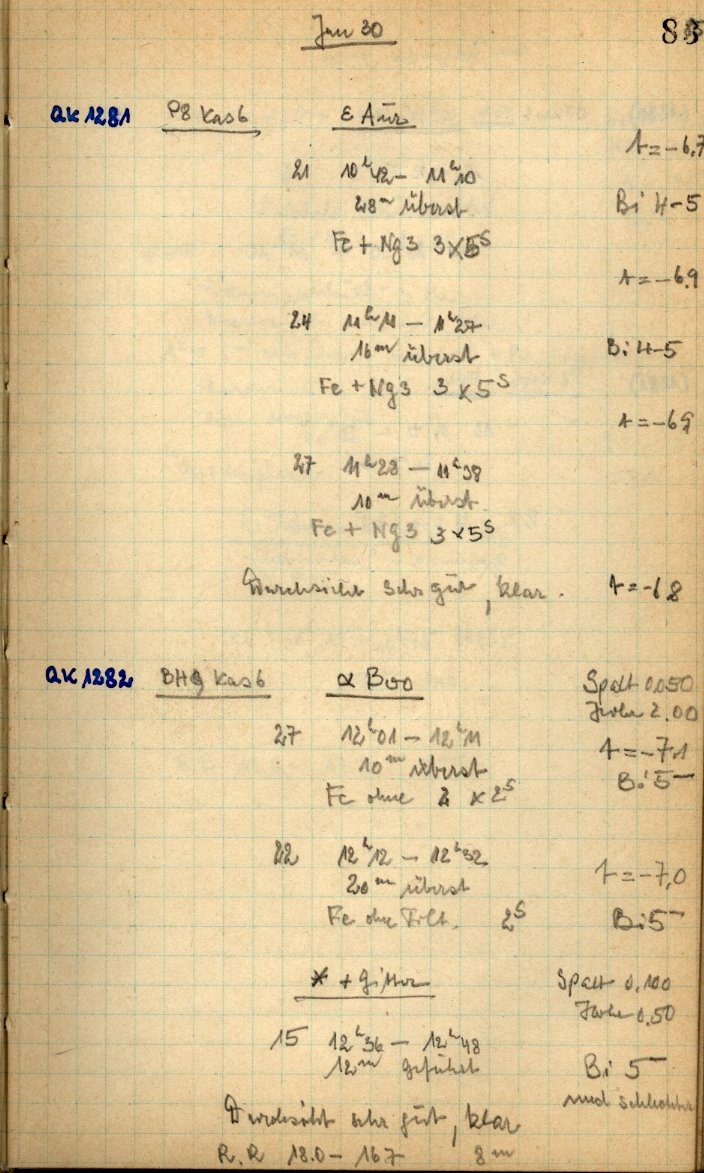 Jan 30 83
QK 1281 P8 Kas6 ε Aur
t = -6.7
21 10h42 - 11h10
28m überst Bi 4-5
Fe + Ng3 3x5s
t = -6.9
24 11h11 - 11h27
16m überst Bi 4-5
Fe + Ng3 3x5s
t = -6.9
27 11h28 - 11h38
10m überst
Fe + Ng3 3x5s
Durchsicht sehr gut, klar. t = -6.8
QK 1282 BHq Kas6 α Boo Spalt 0.050
Höhe 2.00
27 12h01 - 12h11 t = -7.1
10m überst Bi 5
Fe ohne 2 x 2s
22 12h12 - 12h32
20m überst t = -7.0
Fe ohne Filt. 2s Bi 5
* + Gitter Spalt 0.100
Höhe 0.50
15 12h36 - 12h48
12m geführt Bi 5
und schlechter
Durchsicht sehr gut, klar
R.R 18.0 - 16.7 8m